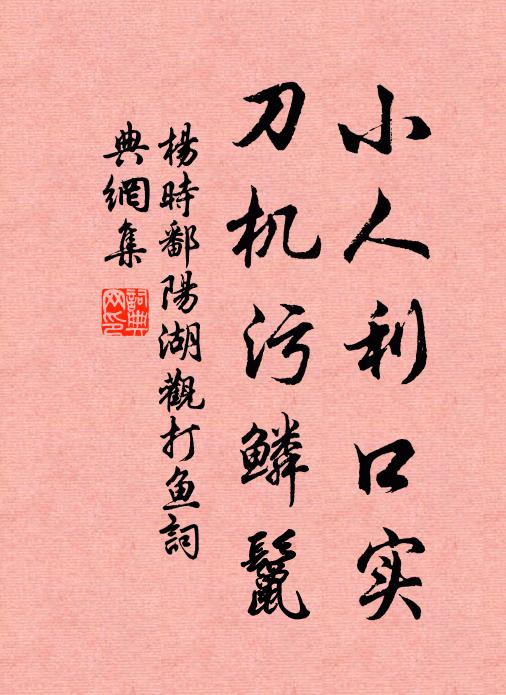 小人利口实
刀机污鳞鬣
楊時鄱陽湖觀打鱼詞
典網集
詞典网印